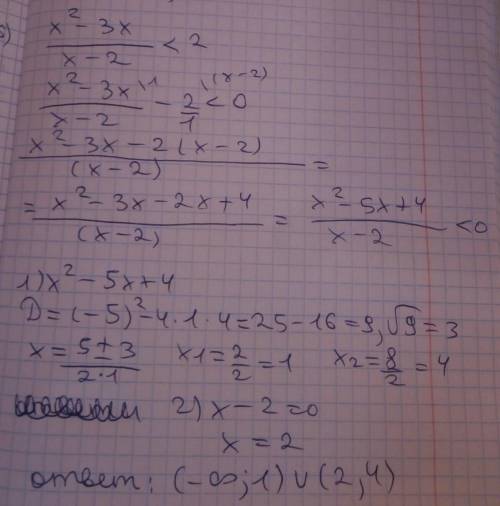 б) (x² - 3x)/(x - 2) < 2
(x² - 3x \¹)/(x - 2) - (2 \⁽ˣ⁻²⁾)/1 < 0
(x² - 3x - 2(x - 2))/((x - 2)) =
= (x² - 3x - 2x + 4)/((x - 2)) = (x² - 5x + 4)/(x - 2) < 0
1) x² - 5x + 4
D = (-5)² - 4 · 1 · 4 = 25 - 16 = 9, √9 = 3
x = (5 ± 3)/(2 · 1) x1 = 2/2 = 1 x2 = 8/2 = 4
2) x - 2 = 0
x = 2
ответ: (-∞; 1) ∪ (2, 4)